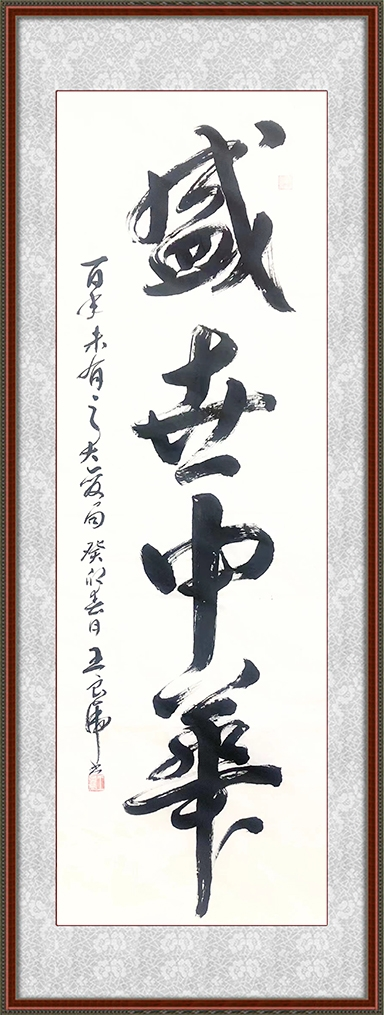 盛世中華
百年未有之大变局 癸卯春日 王良虎书